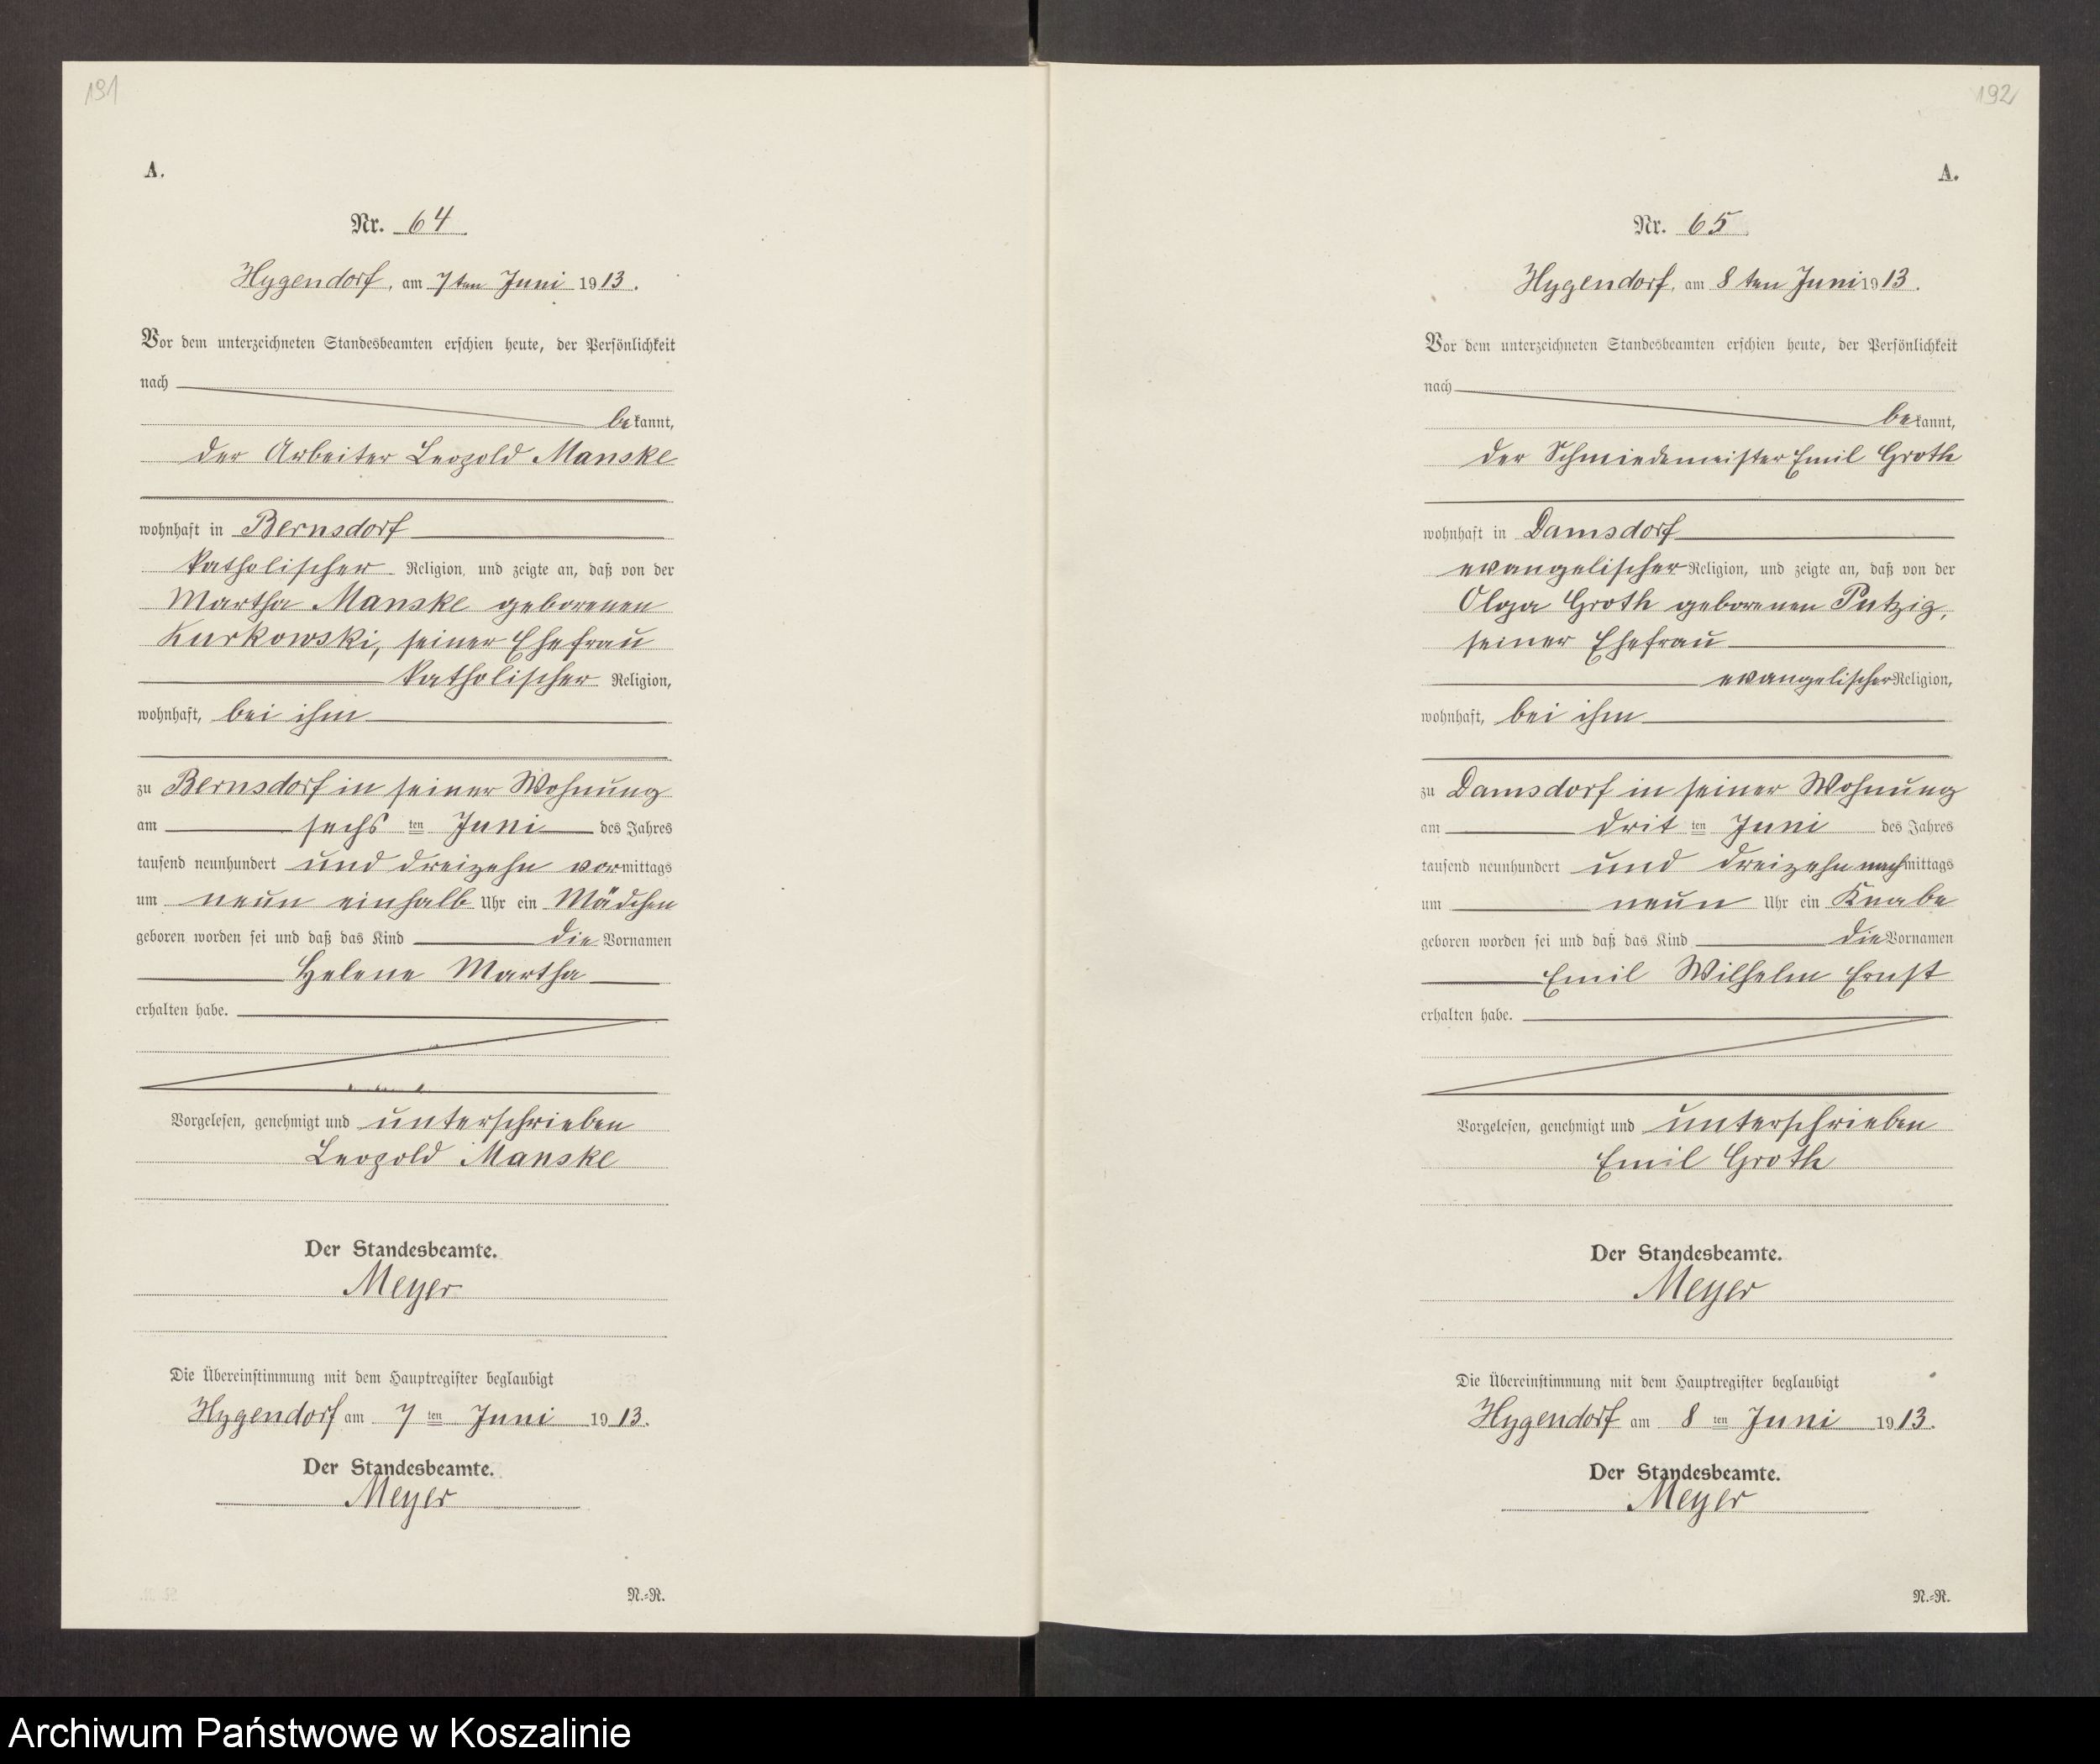 191
A.
Nr. 64
Hygendorf, am 7ten Juni 1913.
Vor dem unterzeichneten Standesbeamten erschien heute, der Persönlichkeit
nach
bekannt,
der Arbeiter Leopold Manske
wohnhaft in Bernsdorf
katholischer Religion, und zeigte an, daß von der
Martha Manske geborenen
Kurkowski, seiner Ehefrau
katholischer Religion,
wohnhaft, bei ihm
zu Bernsdorf in seiner Wohnung
am sechs ten Juni des Jahres
tausend neunhundert und dreizehn vormittags
um neun einhalb Uhr ein Mädchen
geboren worden sei und daß das Kind die Vornamen
Helene Martha
erhalten habe.
Vorgelesen, genehmigt und unterschrieben
Leopold Manske
Der Standesbeamte.
Meyer
Die Übereinstimmung mit dem Hauptregister beglaubigt
Hygendorf am 7 ten Juni 1913.
Der Standesbeamte.
Meyer
N.=R.
192
A.
Nr. 65
Hygendorf, am 8 ten Juni 1913.
Vor dem unterzeichneten Standesbeamten erschien heute, der Persönlichkeit
nach
bekannt,
der Schmiedemeister Emil Groth
wohnhaft in Damsdorf
evangelischer Religion, und zeigte an, daß von der
Olga Groth geborenen Putzig,
seiner Ehefrau
evangelischer Religion,
wohnhaft, bei ihm
zu Damsdorf in seiner Wohnung
am drit ten Juni des Jahres
tausend neunhundert und dreizehn nachmittags
um neun Uhr ein Knabe
geboren worden sei und daß das Kind die Vornamen
Emil Wilhelm Ernst
erhalten habe.
Vorgelesen, genehmigt und unterschrieben
Emil Groth
Der Standesbeamte.
Meyer
Die Übereinstimmung mit dem Hauptregister beglaubigt
Hygendorf am 8 ten Juni 1913.
Der Standesbeamte.
Meyer
N.=R.
Archiwum Państwowe w Koszalinie